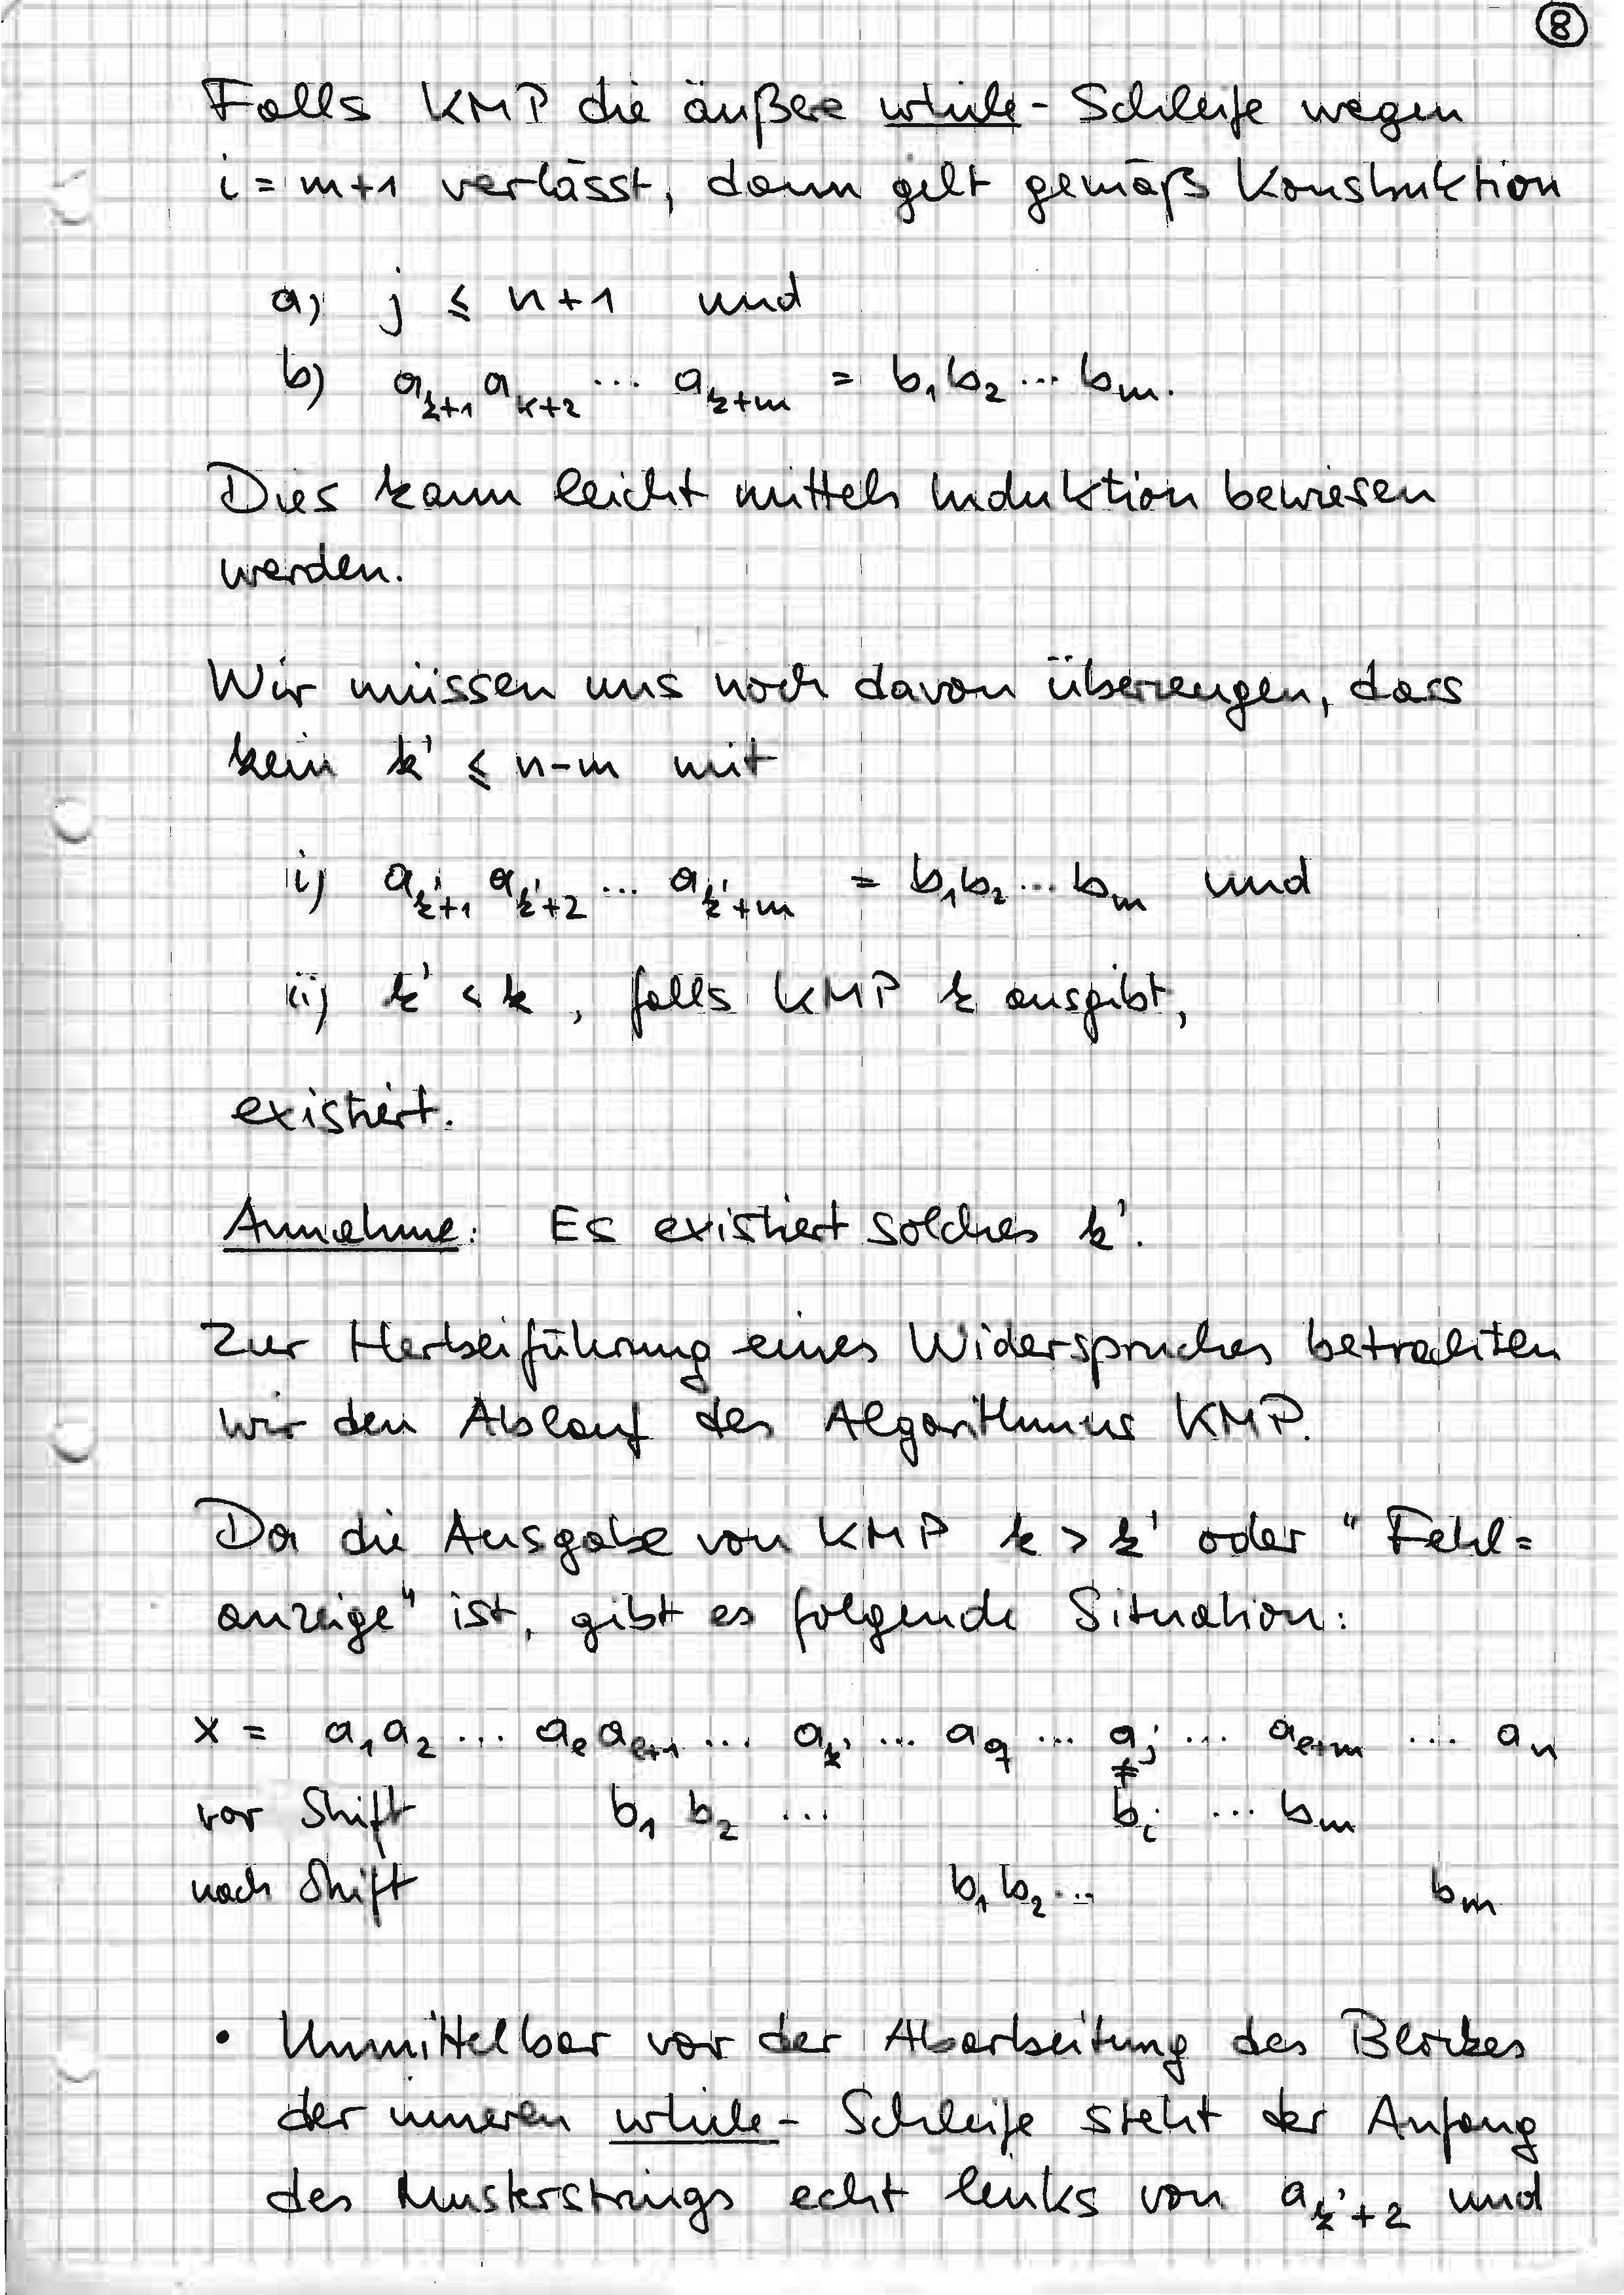 ⑧
Falls KMP die äußere while-Schleife wegen
i = m+1 verlässt, dann gilt gemäß Konstruktion
a) j ≤ n+1 und
b) a_{k+1} a_{k+2} ... a_{k+m} = b_1 b_2 ... b_m.
Dies kann leicht mittels Induktion bewiesen
werden.
Wir müssen uns noch davon überzeugen, dass
kein k' ≤ n-m mit
i) a_{k'+1} a_{k'+2} ... a_{k'+m} = b_1 b_2 ... b_m und
ii) k' < k, falls KMP k ausgibt,
existiert.
Annahme: Es existiert solches k'.
Zur Herbeiführung eines Widerspruches betrachten
wir den Ablauf des Algorithmus KMP.
Da die Ausgabe von KMP k > k' oder "Fehl=
anzeige" ist, gibt es folgende Situation:
x = a_1 a_2 ... a_e a_{e+1} ... a_{k'} ... a_q ... a_j ... a_{e+m} ... a_n
≠
vor Shift b_1 b_2 ... b_i ... b_m
nach Shift b_1 b_2 ... b_m
• Unmittelbar vor der Abarbeitung des Blockes
der inneren while-Schleife steht der Anfang
des Musterstrings echt links von a_{k'+2} und